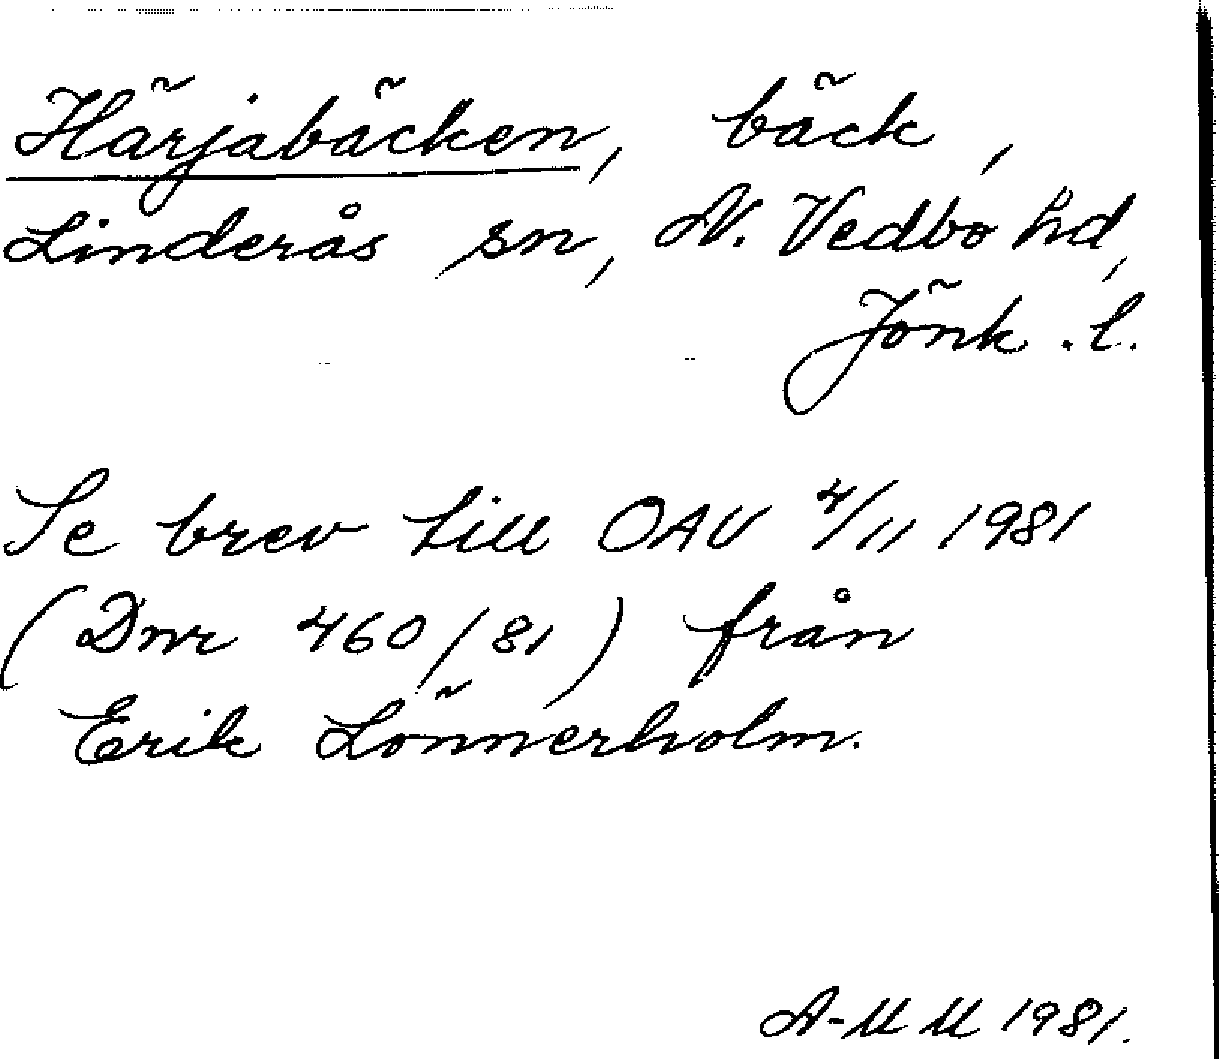 Härjabäcken, bäck,
Linderås sn, N. Vedbo hd,
Jönk. l.
Se brev till OAU 4/11 1981
(Dnr 460/81) från
Erik Lönnerholm.
A-MM 1981.